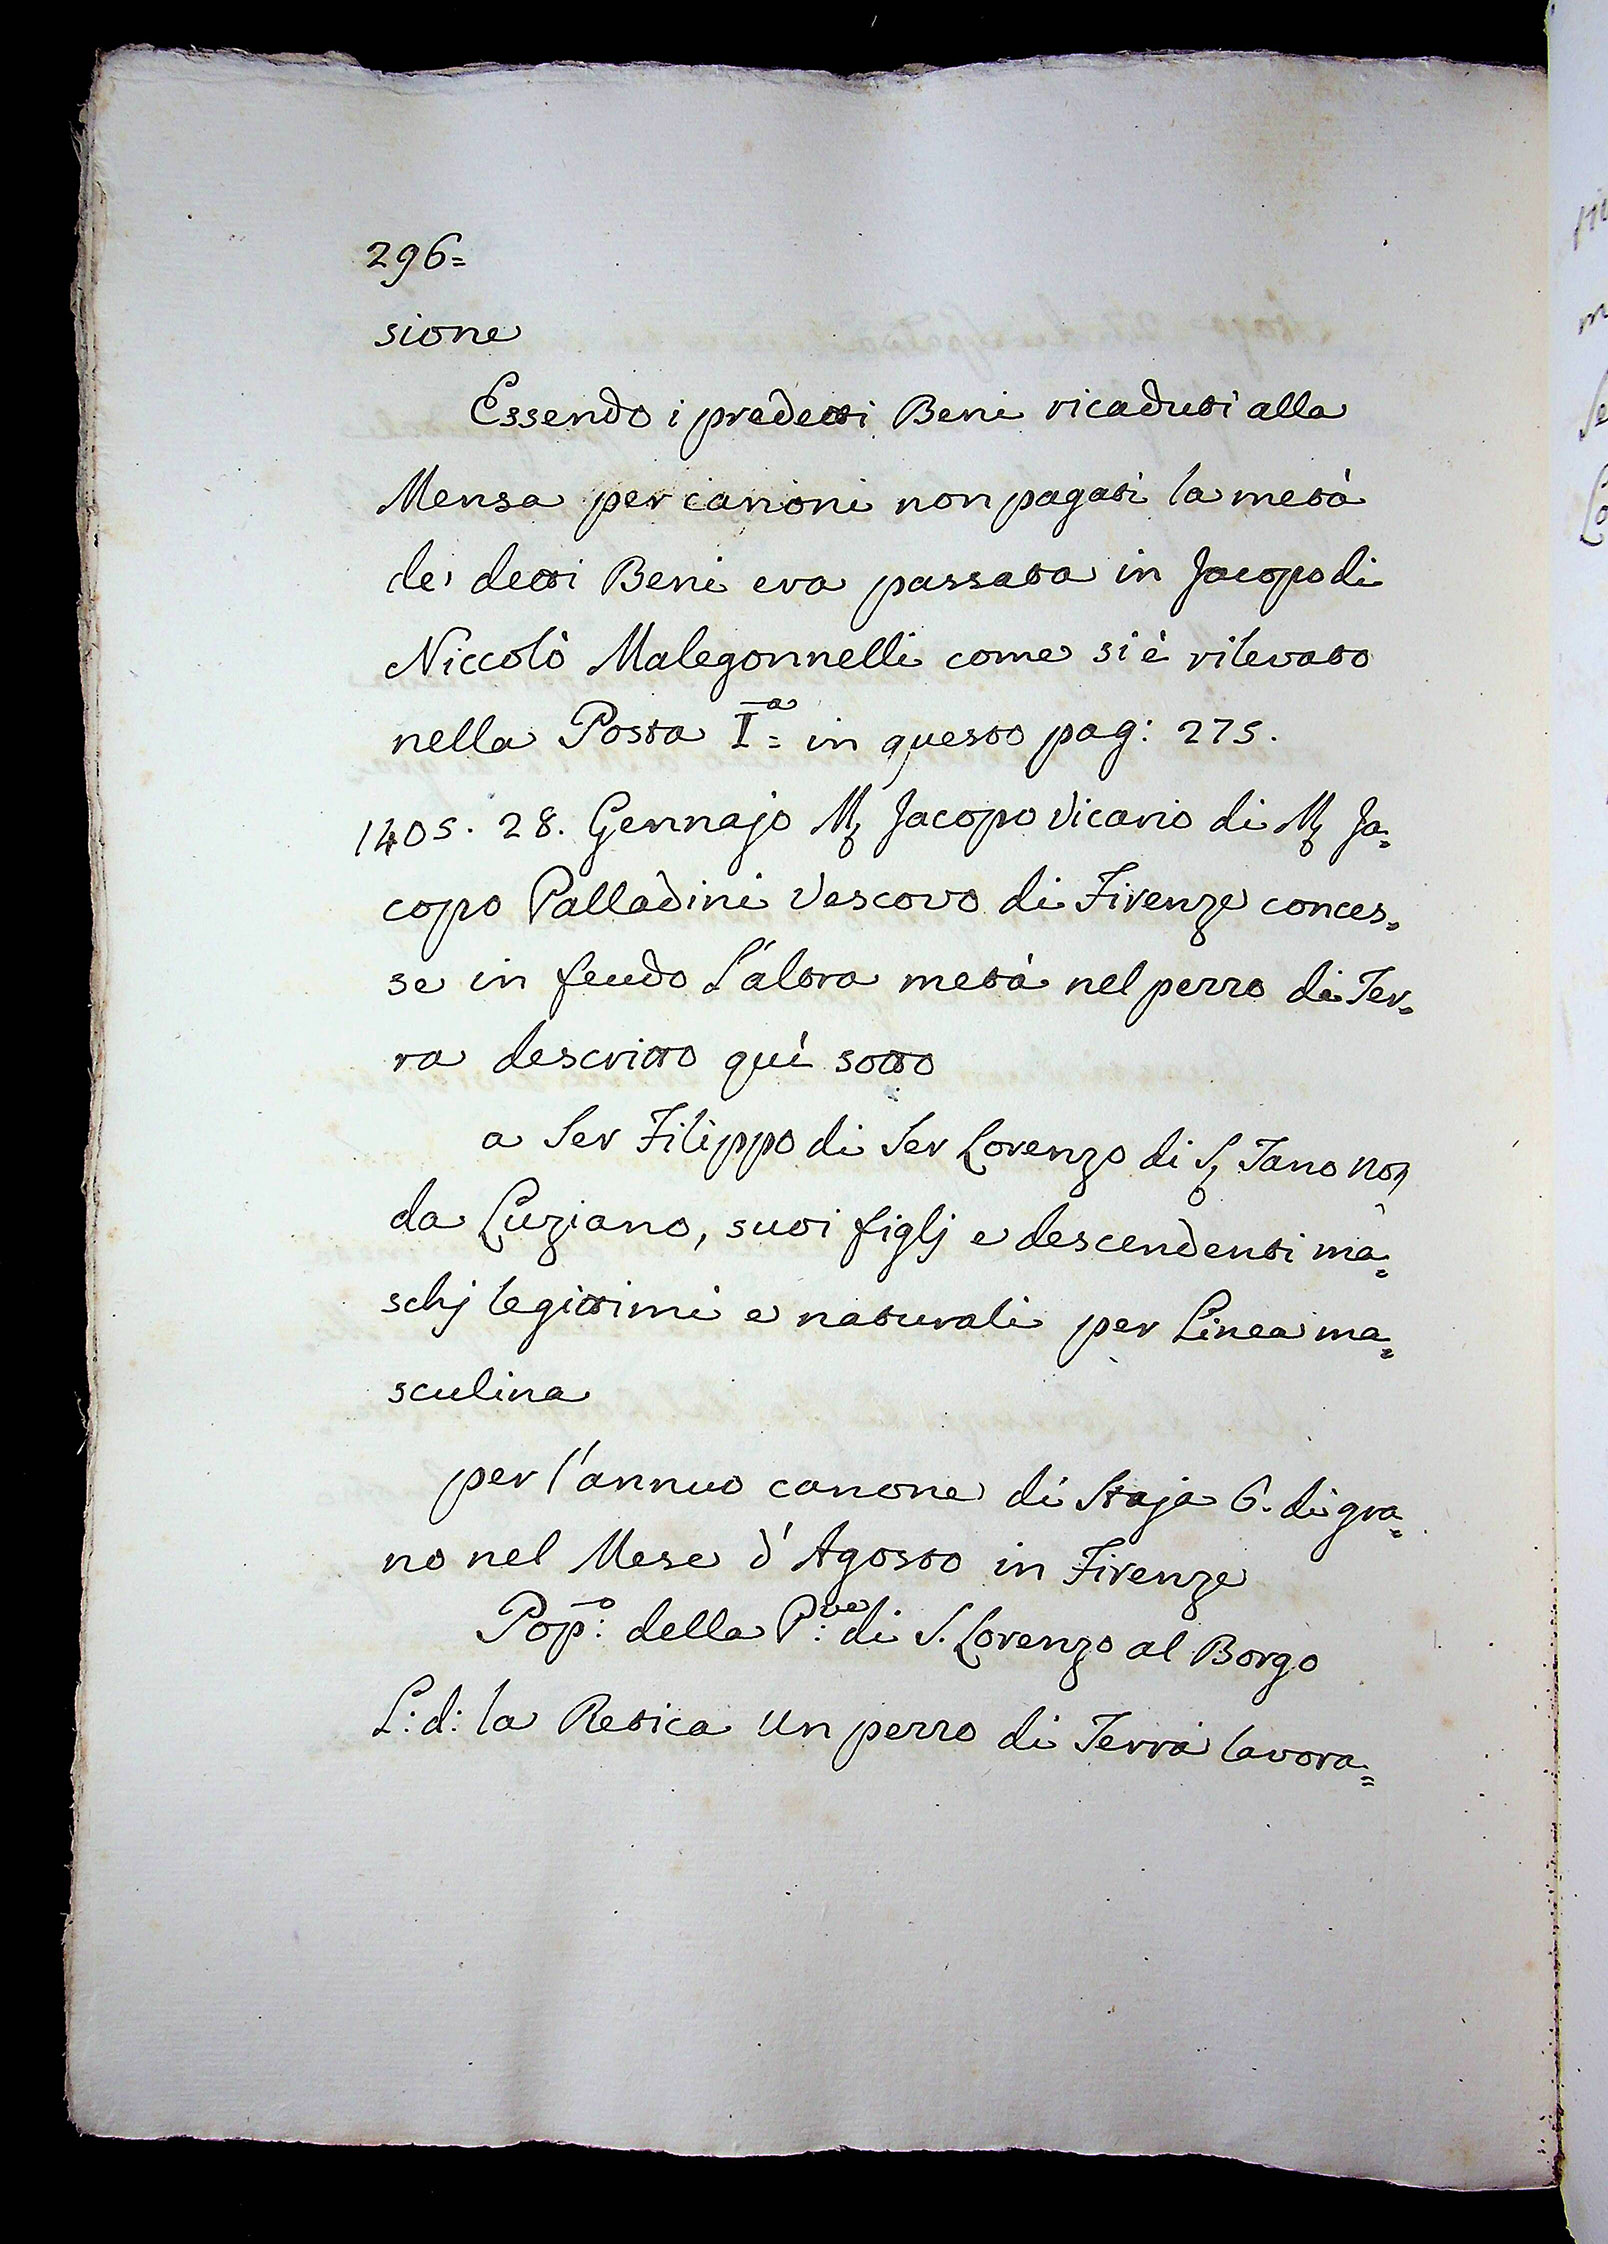 296=
sione
Essendo i predetti Beni ricaduti alla
Mensa per canoni non pagati la metà
de' detti Beni era passata in Jacopo di
Niccolò Malegonnelli come si è rilevato
nella Posta I.a in questo pag: 275.
1405. 28. Gennajo M. Jacopo Vicario di M. Ja=
copo Palladini Vescovo di Firenze conces=
se in feudo l'altra metà nel pezzo di Ter=
ra descritto quì sotto
a Ser Filippo di Ser Lorenzo di S. Tano
da Luziano, suoi figlj e descendenti ma=
schj legittimi e naturali per Linea ma=
sculina
per l'annuo canone di Staja 6. di gra=
no nel Mese d'Agosto in Firenze
Pop:o della P:ve di S. Lorenzo al Borgo
L: d: la Retica un pezzo di Terra lavora=